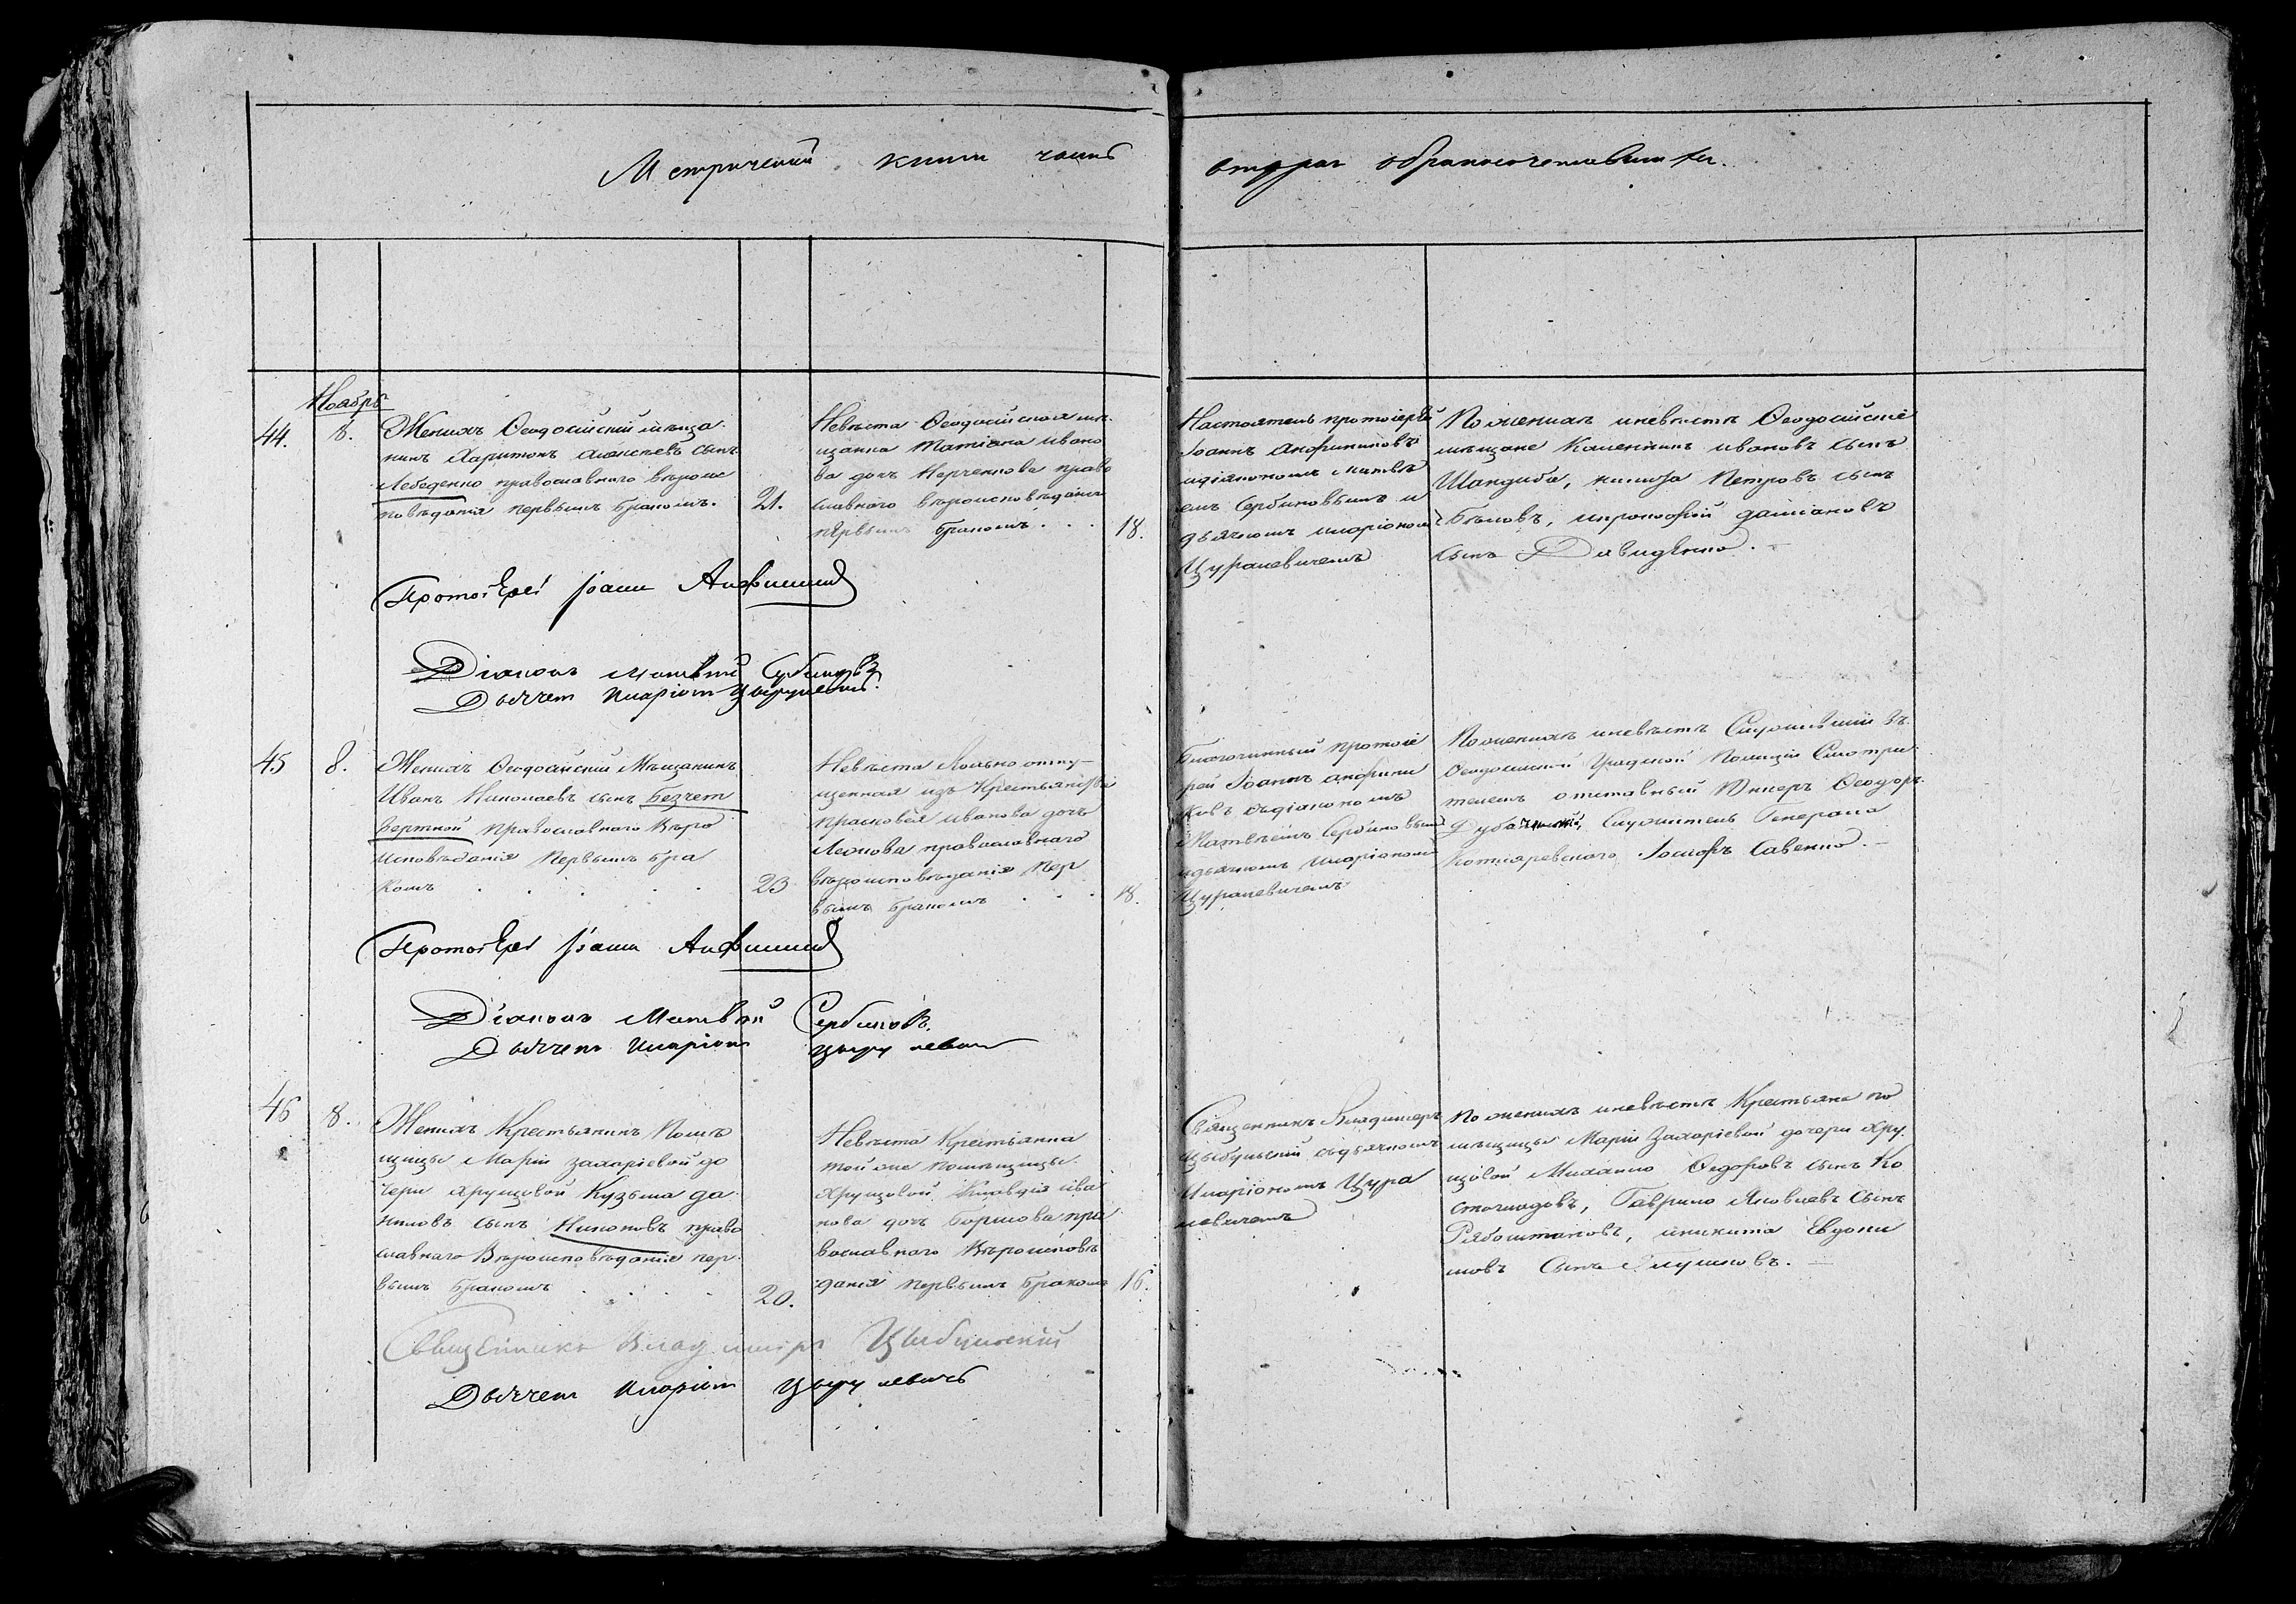 Метрической книги часть вторая о бракосочетавшихся.
Ноябрь
44.
8.
Женихъ Ѳеодосійскій мѣща
нинъ Харитонъ Алексѣевъ сынъ
Лебеденко православнаго вѣроис
повѣданія первымъ бракомъ.
21.
Невѣста Ѳеодосійская мѣ
щанка Татіана Ивано
ва дочь православ
славнаго вѣроисповѣданія
первымъ бракомъ . . .
18.
Настоятель протоіерей
Іоаннъ
идіакономъ Матвѣ
емъ Сербиновымъ и
дьячкомъ Иларіономъ
Цурапевичемъ
По женихѣ и невѣстѣ Ѳеодосійскіе
мѣщане Ивановъ сынъ
Шандиба, Петровъ сынъ
Бѣловъ, и Прокофій Даміановъ
сынъ Давиденко.
Протоіерей Іоаннъ
Діаконъ Матвѣй Сербиновъ
Дьячекъ Иларіонъ
45
8.
Женихъ Ѳеодосійскій Мѣщанинъ
Иванъ Николаевъ сынъ Безчет
вертной православнаго Вѣро
исповѣданія Первымъ бра
комъ . . . . .
23
Невѣста вольно отпу-
щенная изъ Крестьянства
Прасковея Иванова дочь
Леонова православнаго
вѣроисповѣданія пер
вымъ бракомъ . . .
18.
Благочинный протоіе
рей Іоаннъ
съ діакономъ
Матвѣемъ Сербиновымъ
идьячкомъ Иларіономъ
Цурапевичемъ
По женихѣ и невѣстѣ Служившій въ
Ѳеодосійской Градской Полиціи Смотри
телемъ отставный Юнкеръ Ѳеодоръ
Служитель Генерала
Котляревскаго Іосифъ Савенко.
Протоіерей Іоаннъ
Діаконъ Матвѣй Сербиновъ.
Дьячекъ Иларіонъ
46
8.
Женихъ Крестьянинъ Помѣ
щицы Маріи Захаріевой до
чери Хрущовой Кузьма Да
ниловъ сынъ Никоновъ право
славнаго Вѣроисповѣданія пер
вымъ бракомъ . . . .
20.
Невѣста Крестьянка
той же помѣщицы
Хрущовой Клавдія Ива
нова дочь пра
вославнаго Вѣроисповѣ
данія первымъ бракомъ
16.
Священникъ Владимеръ
Цыбульскій съ дьячкомъ
Иларіономъ Цура
певичемъ
По женихѣ и невѣстѣ Крестьяне по
мѣщицы Маріи Захаріевой дочери Хру
щовой Ѳедоровъ сынъ
Гаврило Яковлевъ Сынъ
и Никита Евдоки
мовъ Сынъ Глушковъ.
Священникъ Владимиръ Цыбульскій
Дьячекъ Иларіонъ